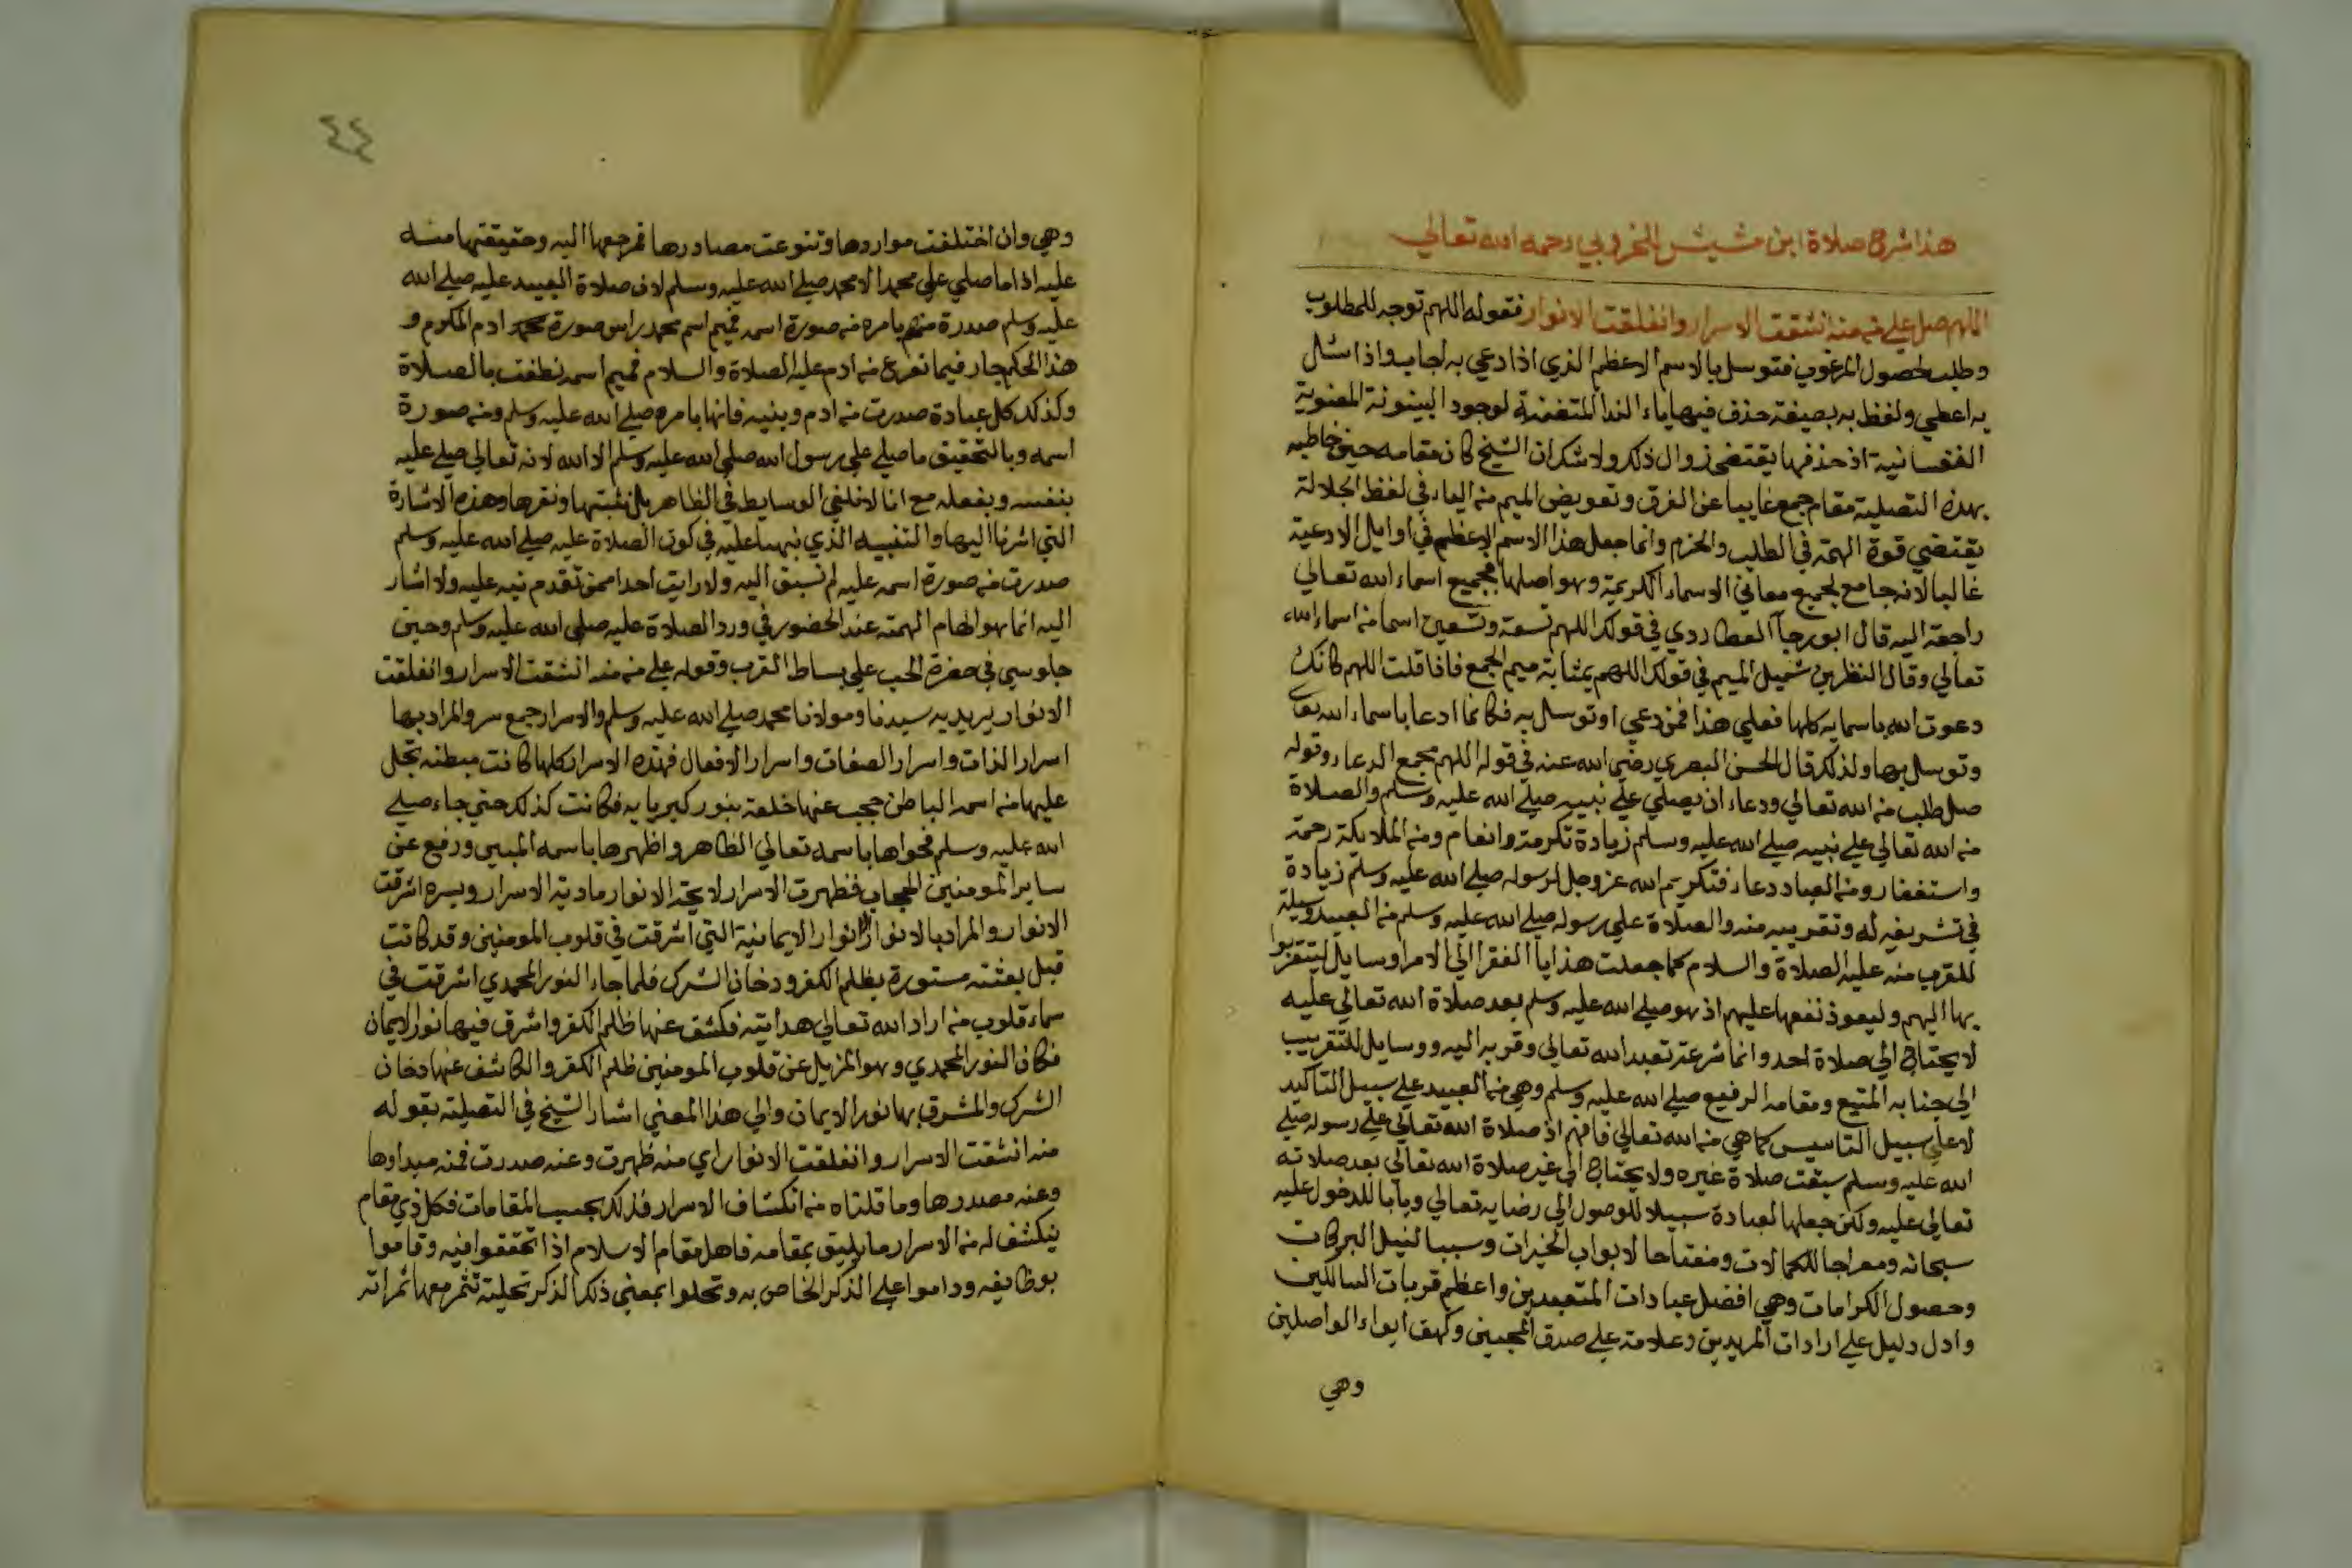 هذا شرح صلاة ابن مشيش للخروبي رحمه الله تعالي
اللهم صل علي من منه انشقت الاسرار وانفلقت الانوار فقوله اللهم توجه للمطلوب
وطلب لحصول المرغوب فتوسل بالاسم الاعظم الذي اذا دعي به اجاب واذا سئل
به اعطي ولفظ به بصيغة حذف فيها ياء الندا المتضمنة لوجود البينونة المعنوية
النفسانية اذ حذفها يقتضي زوال ذلك ولا شك ان الشيخ كان مقامه حين خاطبه
بهذه التصلية مقام جمع غايبا عن الفرق وتعويض الميم من الياء في لفظ الجلالة
يقتضي قوة الهمة في الطلب والحزم وانما جعل هذا الاسم الاعظم في اوايل الادعية
غالبا لانه جامع لجميع معاني الاسماء الكريمة وهو اصلها فجميع اسماء الله تعالي
راجعة اليه قال ابو رجآ العطاردي في قولك اللهم تسعة وتسعين اسما من اسماء الله
تعالي وقال النظر بن شميل الميم في قولك اللهم بمثابة ميم الجمع فاذا قلت اللهم كانك
دعوت الله باسمايه كلها فعلي هذا فمن دعي او توسل به فكانما ادعا باسماء الله تعا
وتوسل بها ولذلك قال الحسن البصري رضي الله عنه في قوله اللهم مجمع الدعاء وقوله
صل طلب من الله تعالي ودعاء ان يصلي علي نبيه صلي الله عليه وسلم والصلاة
من الله تعالي علي نبيه صلي الله عليه وسلم زيادة تكرمة وانعام ومن الملايكة رحمة
واستغفار ومن العباد دعاء فتكريم الله عز وجل لرسوله صلي الله عليه وسلم زيادة
في تشريفه له وتقريبه منه والصلاة علي رسوله صلي الله عليه وسلم من العبيد وسيلة
للقرب منه عليه الصلاة والسلام كما جعلت هذايا الفقرا الي الامرا وسايل ليتقربوا
بها اليهم وليعوذ نفعها عليهم اذ هو صلي الله عليه وسلم بعد صلاة الله تعالي عليه
لا يحتاج الي صلاة احد وانما شرعة تعبد الله تعالي وقربه اليه ووسايل للتقريب
الي جنابه المتيع ومقامه الرفيع صلي الله عليه وسلم وهي من العبيد علي سبيل التاكيد
لا علي سبيل التاسيس كما هي من الله تعالي فافهم اذ صلاة الله تعالي علي رسوله صلي
الله عليه وسلم سبقت صلاة غيره ولا يحتاج الي غير صلاة الله تعالي بعد صلاته
تعالي عليه ولكن جعلها لعبادة سبيلا للوصول الي رضايه تعالي وبابا للدخول عليه
سبحانه ومعراجا للكمالات ومفتاحا لابواب الخيرات وسببا لنيل البركات
وحصول الكرامات وهي افضل عبادات المتعبدين واعظم قربات السالكين
وادل دليل علي ارادات المريدين وعلامة علي صدق المحبين وكهف ايواء الواصلين
وهي
٤٤
وهي وان اختلفت مواردها وتنوعت مصادرها فمرجعها اليه وحقيقتها منه
عليه اذ ما صلي علي محمد الا محمد صلي الله عليه وسلم لان صلاة العبيد عليه صلي الله
عليه وسلم صدرة منهم بامره من صورة اسمه فميم اسم محمد براس صورة ادم المكرم و
هذا الحكم جار فيما تفرع من ادم عليه الصلاة والسلام فميم اسمه نطقت بالصلاة
وكذلك كل عبادة صدرت من ادم وبنيه فانها بامره صلي الله عليه وسلم ومن صورة
اسمه وبالتحقيق ما صلي علي رسول الله صلي الله عليه وسلم الا الله لانه تعالي صلي عليه
بنفسه وبفعله مع انا لا نلغي الوسايط في الظاهر بل نثبتها ونقرها وهذه الاشارة
التي اشرنا اليها والتنبيه الذي نبهنا عليه في كون الصلاة عليه صلي الله عليه وسلم
صدرت من صورة اسمه عليه لم نسبق اليه ولا رايت احدا ممن تقدم نبه عليه ولا اشار
اليه انما هو الهام الهمته عند الحضور في ورد الصلاة عليه صلي الله عليه وسلم وحين
جلوسي في حضرة الحب علي بساط القرب وقوله علي من منه انشقت الاسرار وانفلقت
الانوار يريد به سيدنا ومولانا محمد صلي الله عليه وسلم والاسرار جمع سر والمراد بها
اسرار الذات واسرار الصفات واسرار الافعال فهذه الاسرار كلها كانت مبطنه تجلي
عليها من اسمه الباطن حجب عنها خلقه بنور كبريايه فكانت كذلك حتي جاء صلي
الله عليه وسلم فحواها باسمه تعالي الظاهر واظهرها باسمه المبين ورفع عن
ساير المومنين الحجاب فظهرت الاسرار لايحة الانوار مادية الاسرار وبسره اشرقت
الانوار والمراد بالانوار الانوار الايمانية التي اشرقت في قلوب المومنين وقد كانت
قبل بعثته مستورة بظلم الكفر ودخان الشرك فلما جاء النور المحمدي اشرقت في
سماء قلوب من اراد الله تعالي هدايته فكشف عنها ظلم الكفر واشرق فيها نور الايمان
فكان النور المحمدي وهو المزيل عن قلوب المومنين ظلم الكفر والكاشف عنها دخان
الشرك والمشرق بها نور الايمان والي هذا المعني اشار الشيخ في التصلية بقوله
منه انشقت الاسرار وانفلقت الانوار اي منه ظهرت وعنه صدرت فمنه مبداوها
وعنه مصدرها وما قلناه من انكشاف الاسرار فذلك بحسب المقامات فكل ذي مقام
ينكشف له من الاسرار ما يليق بمقامه فاهل مقام الاسلام اذا تحققوا فيه وقاموا
بوظايفه وداموا علي الذكر الخاص به وتحلوا بمعني ذلك الذكر تحلية تثمر معها ثمراته